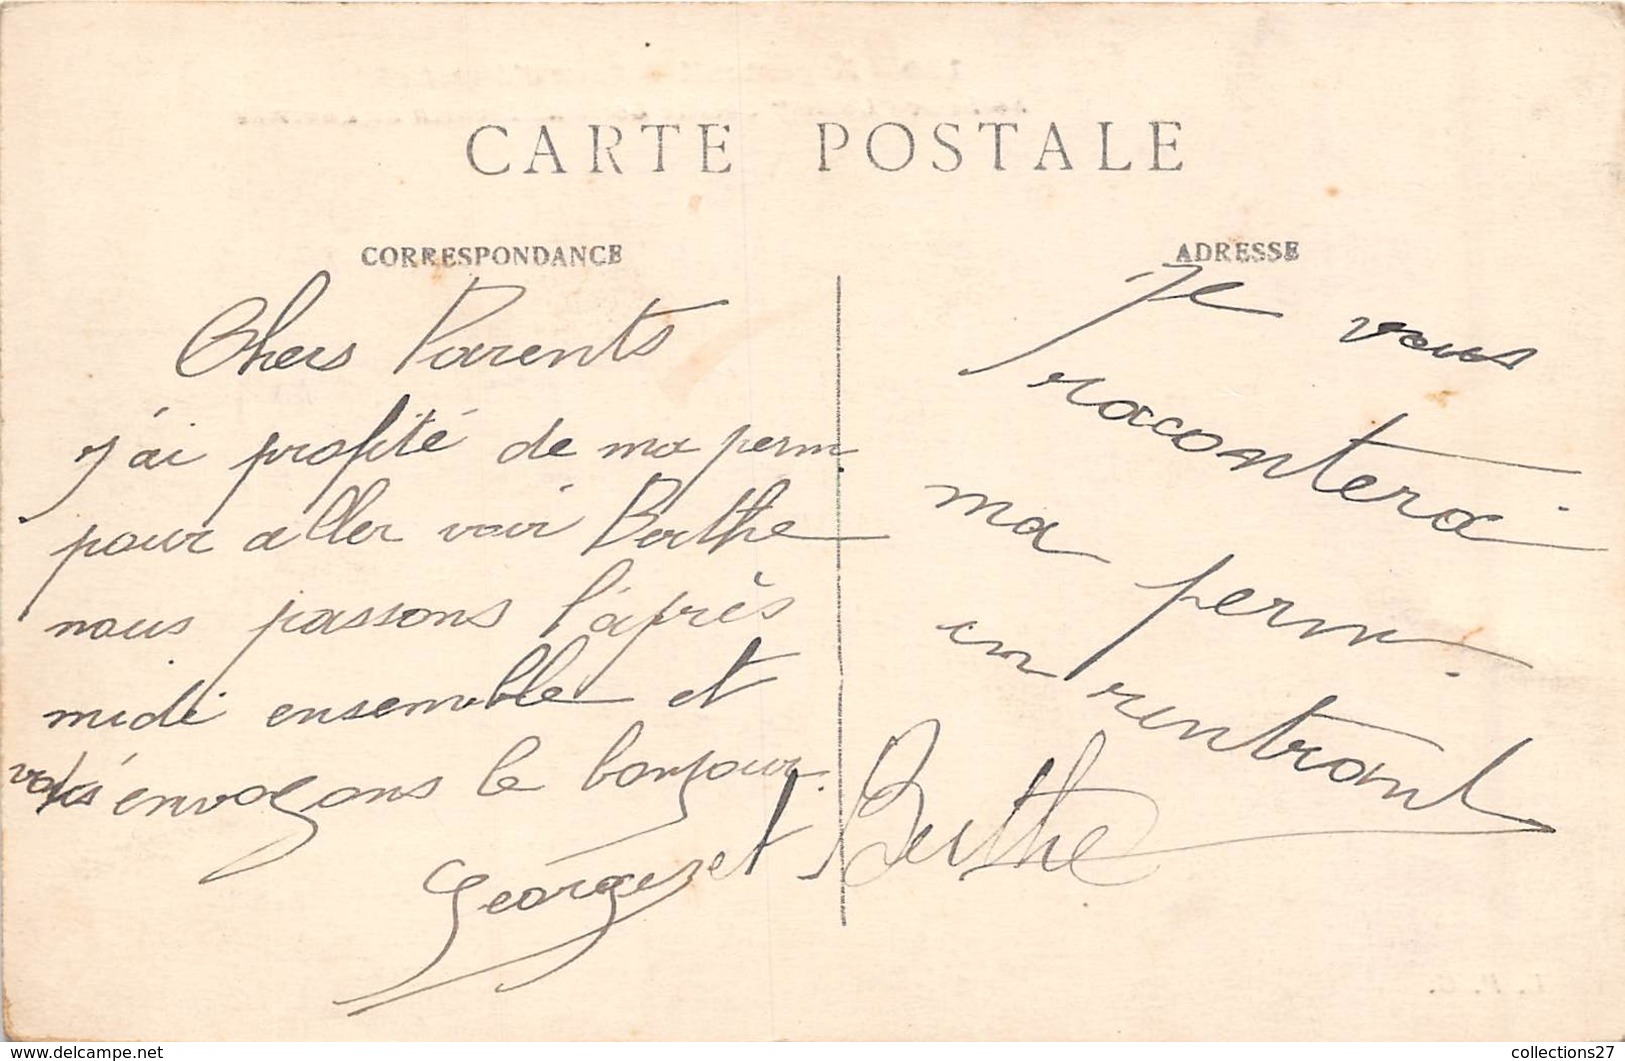 CARTE POSTALE
CORRESPONDANCE
Chers Parents
j'ai profité de ma perm.
pour aller voir Berthe
nous passons l'après
midi ensemble et
vous envoyons le bonjour.
Georges et Berthe
ADRESSE
Je vous
racontera
ma perm.
en rentrant
L. P. C.
www.delcampe.net
collections27